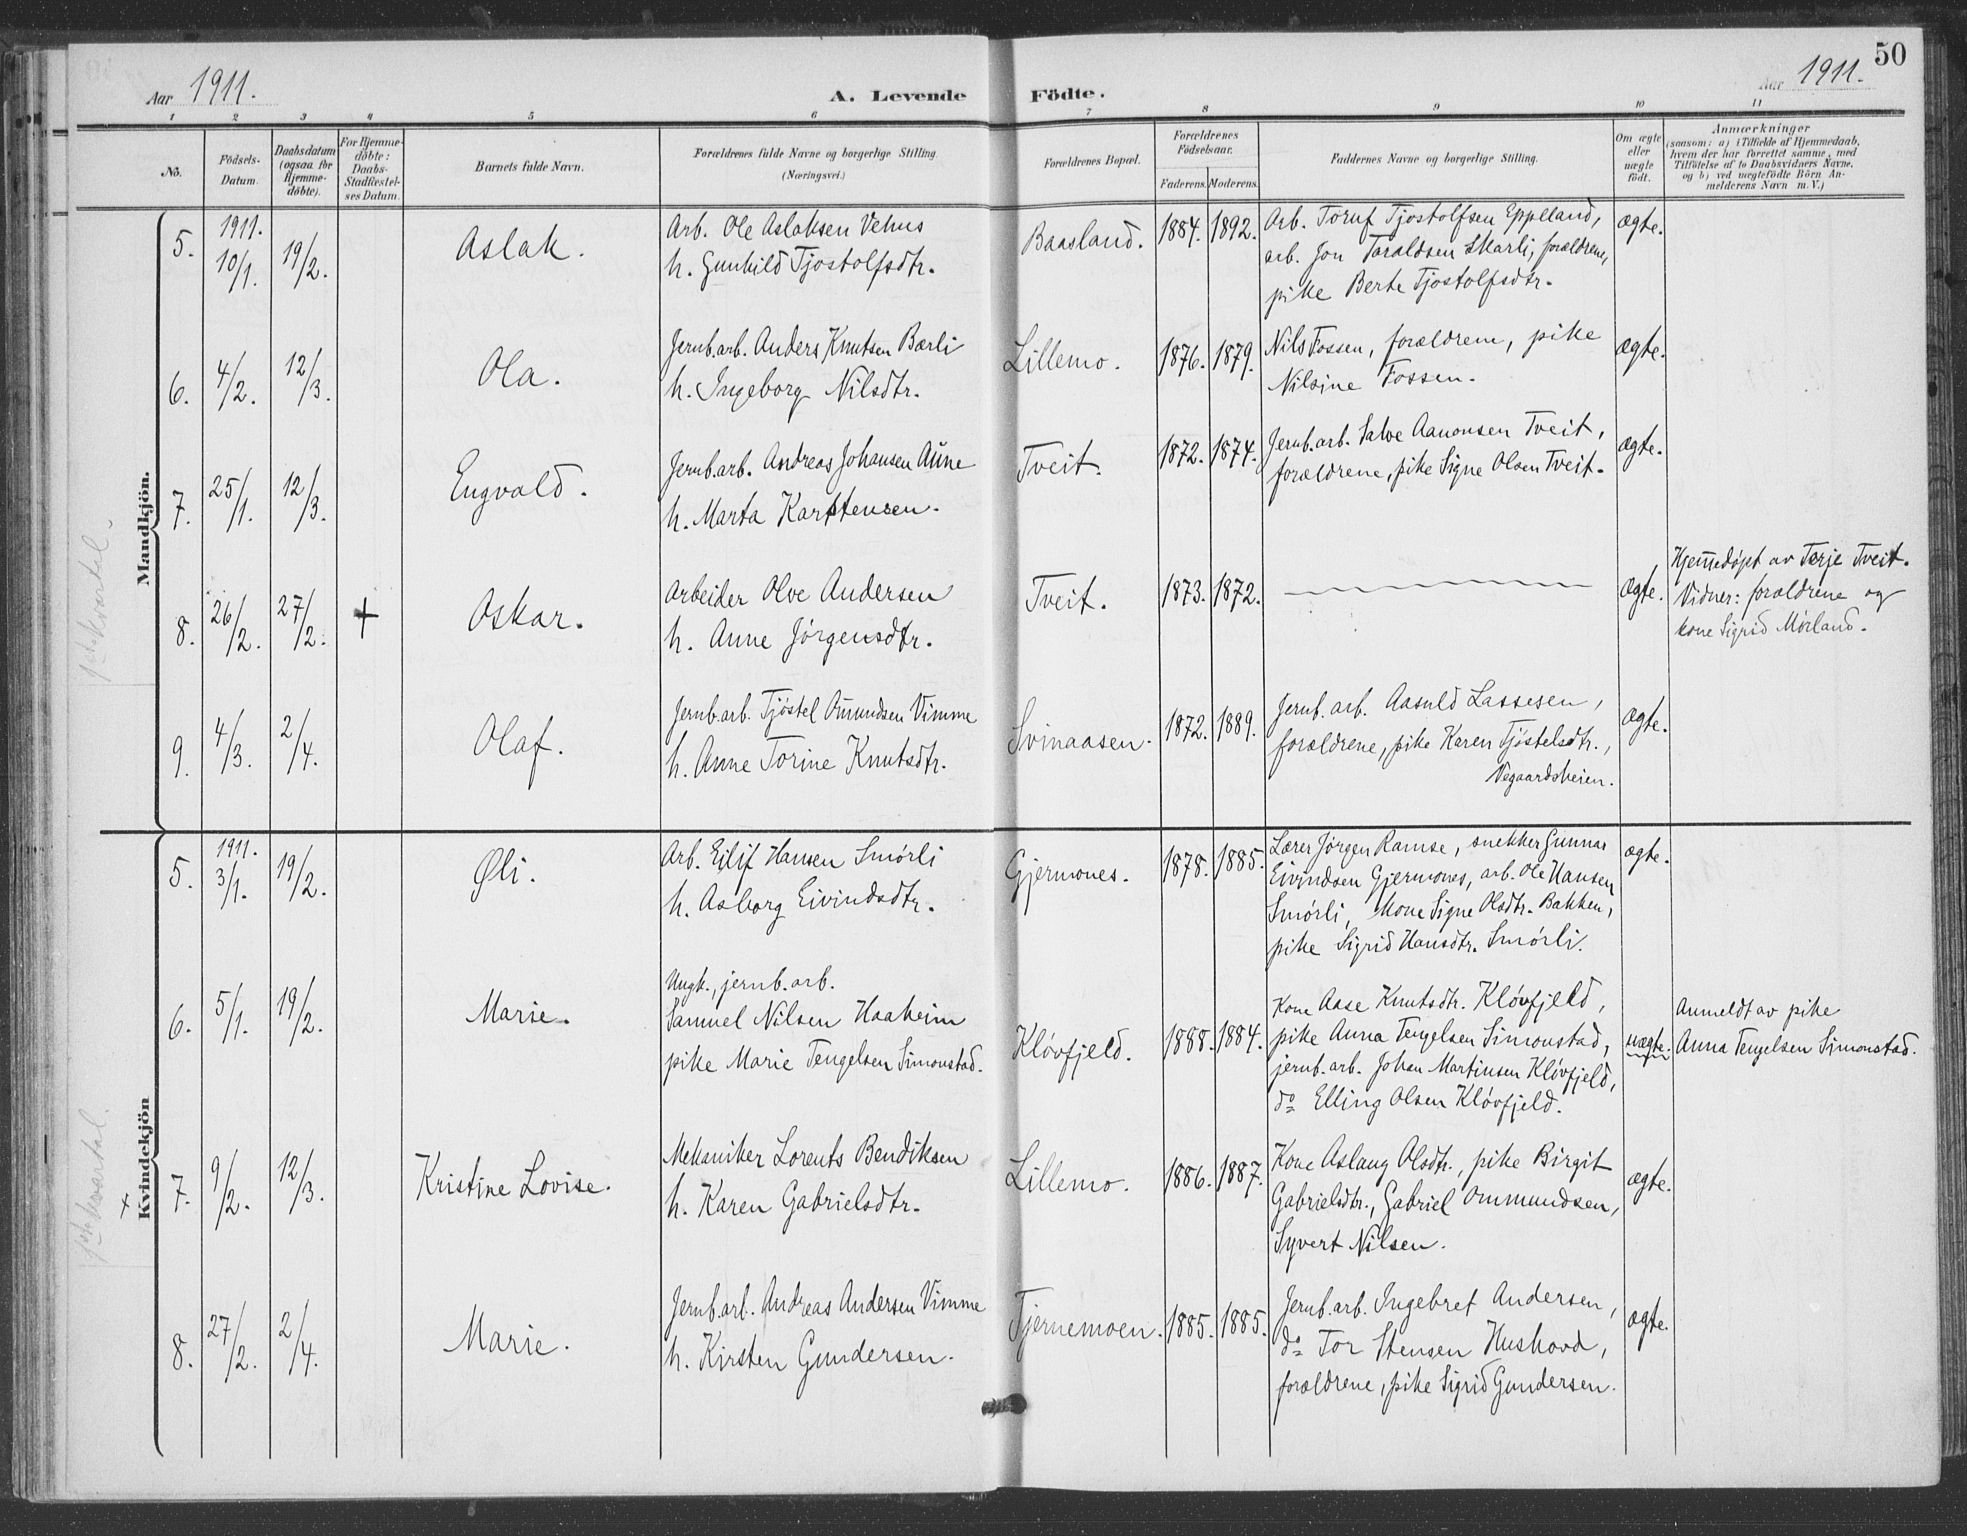 50
Aar 1911. A. Levende Födte. Aar 1911.
1 2 3 4 5 6 7 8 9 10 11
No. Födsels-Datum. Daabsdatum (ogsaa for Hjemmedöbte). For Hjemmedöbte: Daabs-Stadfestelses Datum. Barnets fulde Navn. Forældrenes fulde Navne og borgerlige Stilling. (Næringsvei.) Forældrenes Bopæl. Forældrenes Födselsaar. Faderens. Moderens. Faddernes Navne og borgerlige Stilling. Om ægte eller uægte födt. Anmærkninger
(saasom: a) i Tilfælde af Hjemmedaab, hvem der har forrettet samme, med Tilföielse af to Daabsvidners Navne, og b) ved uægtefödte Börn Anmelderens Navn m. V.)
Mandkjön.
1ste kvartal.
5. 1911. 10/1. 19/2. Aslak. Arb. Ole Aslaksen Vehus
h. Gunhild Tjostolfsdtr. Baasland. 1884. 1892. Arb. Toruf Tjostolfsen Eppelland,
arb. Jon Taraldsen Skarli, forældrene,
pike Berte Tjostolfsdtr. ægte.
6. 4/2. 12/3. Ola. Jernb.arb. Anders Knutsen Bærli
h. Ingeborg Nilsdtr. Lillemo. 1876. 1879. Nils Fossen, forældrene, pike
Nilsine Fossen. ægte.
7. 25/1. 12/3. Engvald. Jernb.arb. Andreas Johansen Aune
h. Marta Karstensen. Tveit. 1872. 1874. Jernb.arb. Salve Aanonsen Tveit,
forældrene, pike Signe Olsen Tveit. ægte.
8. 26/2. 27/2. + Oskar. Arbeider Olve Andersen
h. Anne Jørgensdtr. Tveit. 1873. 1872. ægte. Hjemmedøpt av Terje Tveit.
Vidner: forældrene og
kone Sigrid Mørland.
9. 4/3. 2/4. Olaf. Jernb.arb. Tjøstel Omundsen Vimme
h. Anne Torine Knutsdtr. Svinaasen. 1872. 1889. Jernb.arb. Aasuld Lassesen,
forældrene, pike Karen Tjøstelsdtr.,
Vegaardsheien. ægte.
Kvindekjön
+
1ste kvartal.
5. 1911. 3/1. 19/2. Øli. Arb. Eilif Hansen Smørli
h. Asborg Eivindsdtr. Gjermones. 1878. 1885. Lærer Jørgen Ramse, snekker Gunnar
Eivindsen Gjermones, arb. Ole Hansen
Smørli, kone Signe Olsdtr. Bakken,
pike Sigrid Hansdtr. Smørli. ægte.
6. 5/1. 19/2. Marie. Ungk., jernb.arb.
Samuel Nilsen Haaheim
pike Marie Tengelsen Simonstad. Kløvfjeld. 1888. 1884. Kone Aase Knutsdtr. Kløvfjeld,
pike Anna Tengelsen Simonstad,
jernb.arb. Johan Martinsen Kløvfjeld,
do Elling Olsen Kløvfjeld. uægte. Anmeldt av pike
Anna Tengelsen Simonstad.
7. 9/2. 12/3. Kristine Lovise. Mekaniker Lorents Bendiksen
h. Karen Gabrielsdtr. Lillemo. 1886. 1887. Kone Aslaug Olsdtr., pike Birgit
Gabrielsdtr., Gabriel Ommundsen,
Syvert Nilsen. ægte.
8. 27/2. 2/4. Marie. Jernb.arb. Andreas Andersen Vimme
h. Kirsten Gundersen. Tjernemoen. 1885. 1885. Jernb.arb. Ingebret Andersen,
do Tor Stensen Huskovd,
forældrene, pike Sigrid Gundersen. ægte.